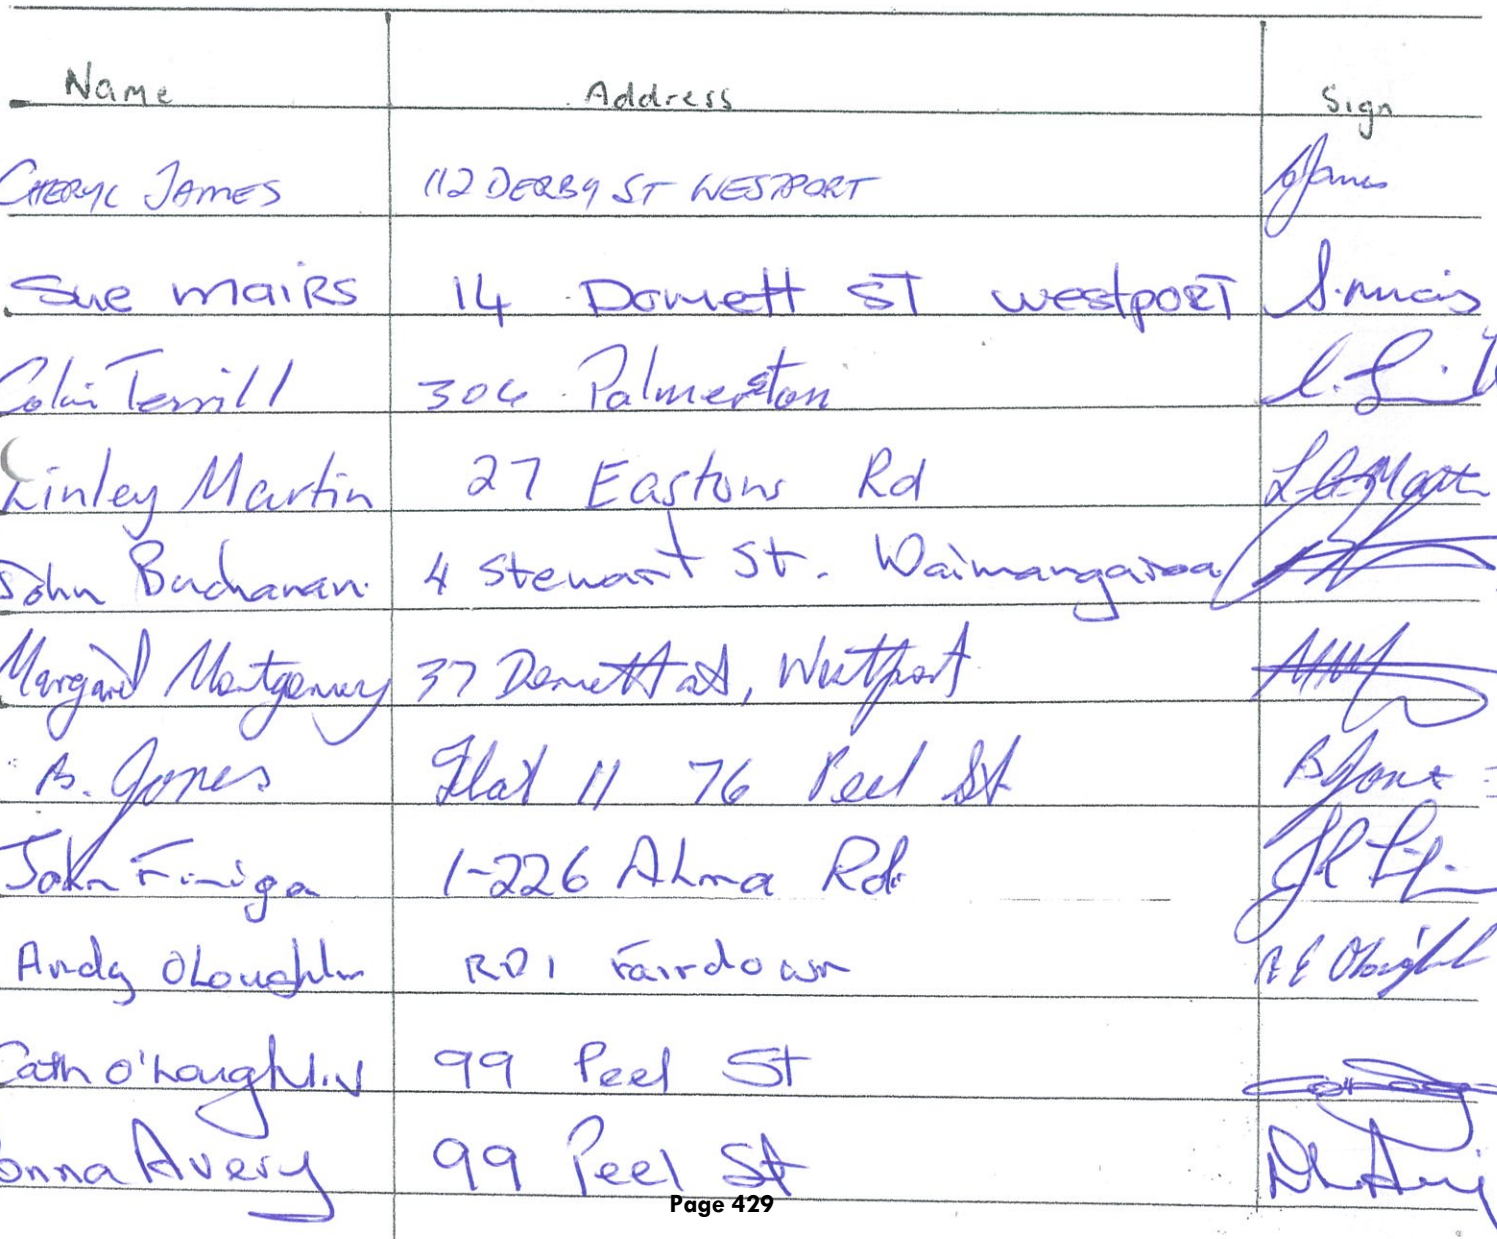 Name Address Sign
CHERYL JAMES 112 DERBY ST WESTPORT
Sue maiRS 14 Domett ST westpoRT S. mairs
Colin Terrill 306 Palmerston
Linley Martin 27 Eastons Rd
John Buchanan. 4 Stewart St. Waimangaroa
Margaret Montgomery 37 Domett st, Westport
B. Jones Flat 11 76 Peel St B Jones
John Finiga 1-226 Alma Rd.
Andy O'Loughlin RD1 Fairdown
Cath O'Loughlin 99 Peel St
onna Avery 99 Peel St
Page 429